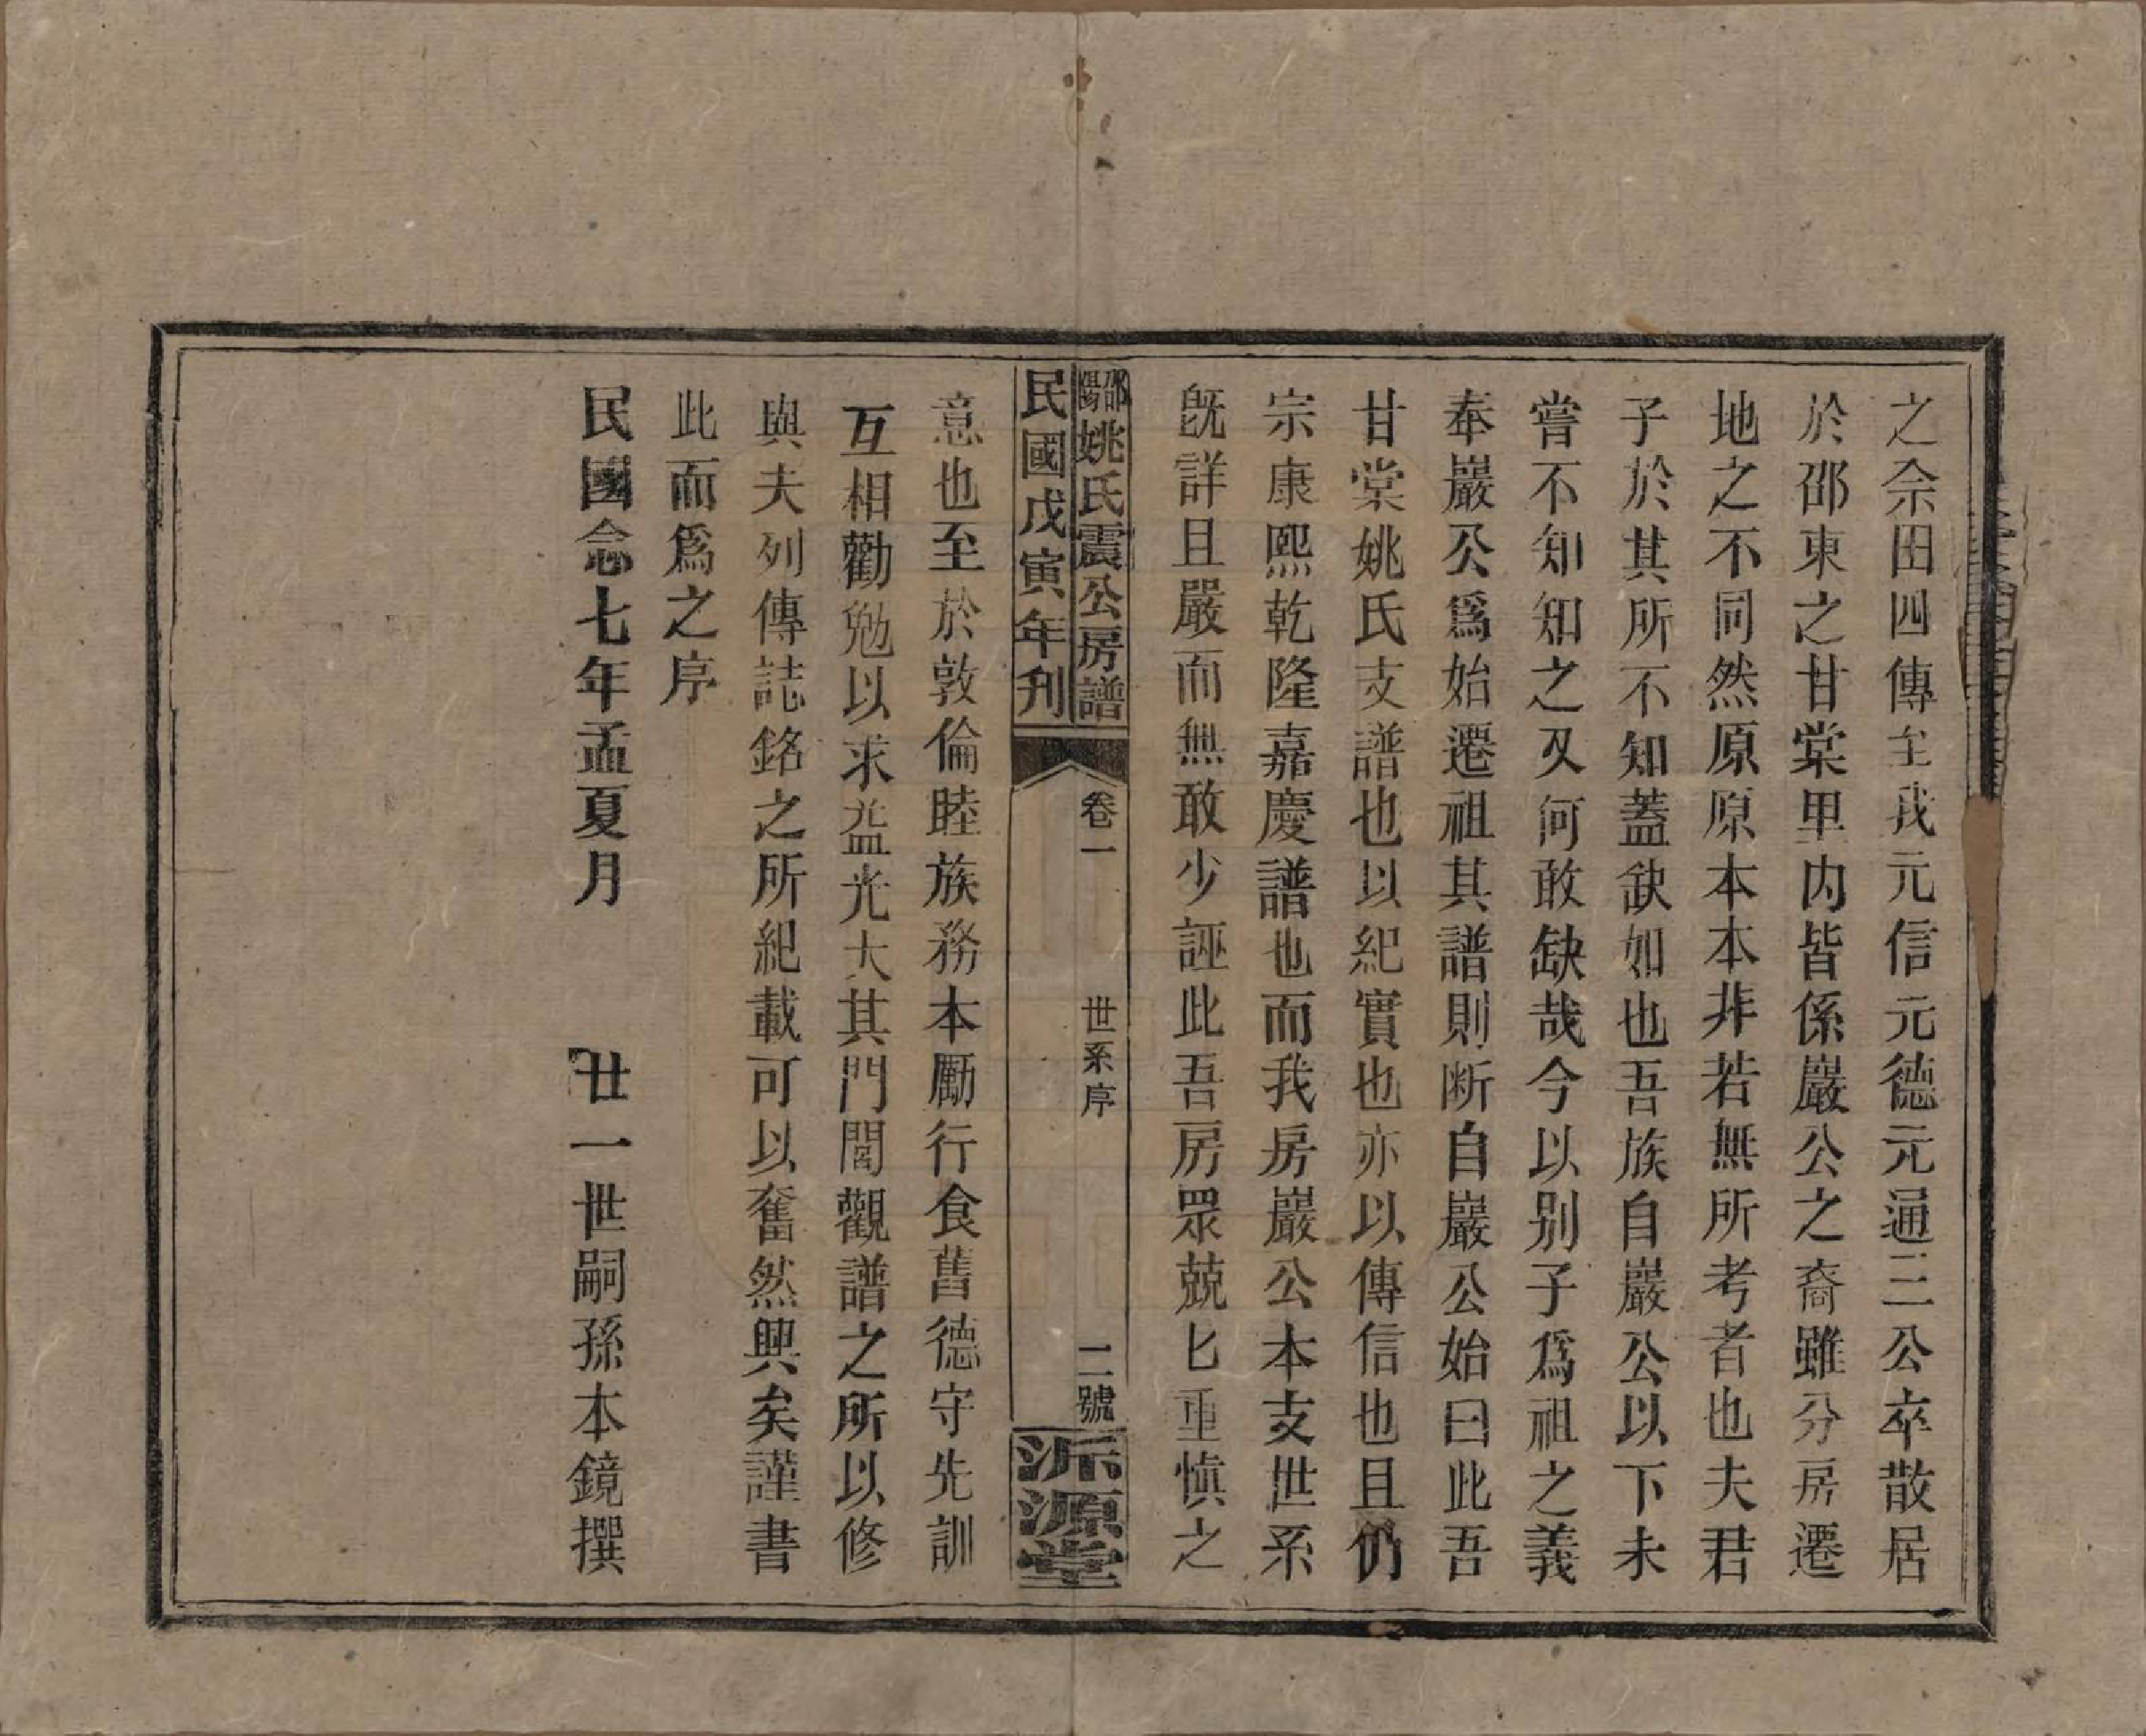 之佘田四傳至我元信元德元通三公卒散居
於邵東之甘棠里內皆係巖公之裔雖分房遷
地之不同然原原本本非若無所考者也夫君
子於其所不知蓋缺如也吾族自巖公以下未
嘗不知知之又何敢缺哉今以别子爲祖之義
奉巖公爲始遷祖其譜則断自巖公始曰此吾
甘棠姚氏支譜也以紀實也亦以傳信也且仍
宗康熙乾隆嘉慶譜也而我房巖公本支世系
旣詳且嚴而無敢少誣此吾房眾兢匕重慎之
邵陽姚氏震公房譜
民國戊寅年刋
卷一
世系序
二號
派源堂
意也至於敦倫睦族務本勵行食舊德守先訓
互相勸勉以求益光大其門閭觀譜之所以修
與夫列傳誌銘之所紀載可以奮然興矣謹書
此而爲之序
民國念七年孟夏月　廿一世嗣孫本鏡撰